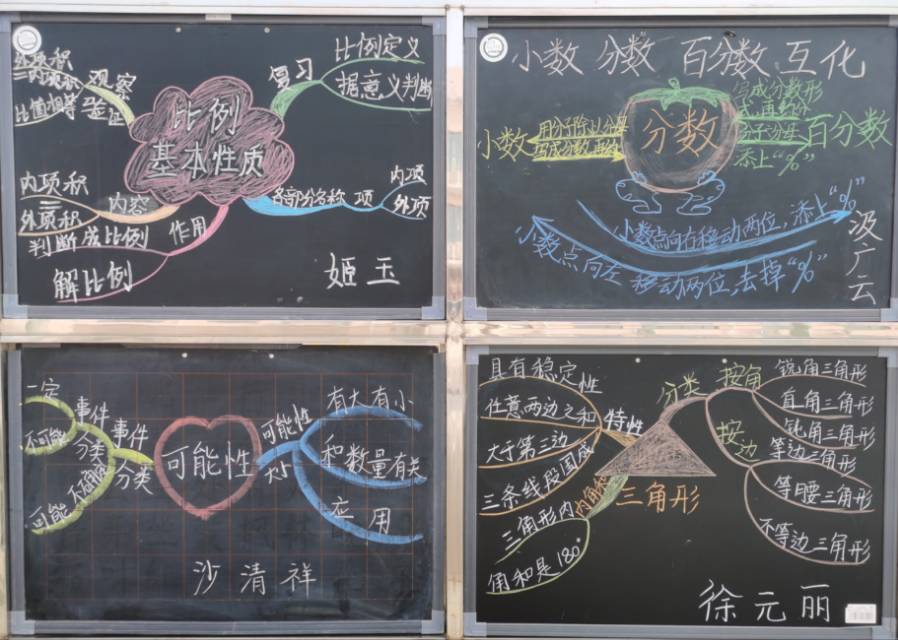 外项积
内项积
比值相等
观察
验证
复习
比例定义
据意义判断
比例
基本性质
内项积
=
外项积
内容
判断成比例
作用
解比例
各部分名称
项
内项
外项
姬玉
小数 分数 百分数互化
小数
用分子除以分母
分数
写成分数形
式,再约分
百分数
添上“%”
小数点向右移动两位,添上“%”
小数点向左移动两位,去掉“%”
汲广云
一定
不可能
可能
不确定
事件
分类
事件
分类
可能性
可能性
大小
有大有小
和数量有关
应用
沙清祥
具有稳定性
任意两边之和
大于第三边
三条线段围成
特性
三角形内
角和是180°
内角和
三角形
分类
按角
锐角三角形
直角三角形
钝角三角形
按边
等边三角形
等腰三角形
不等边三角形
徐元丽